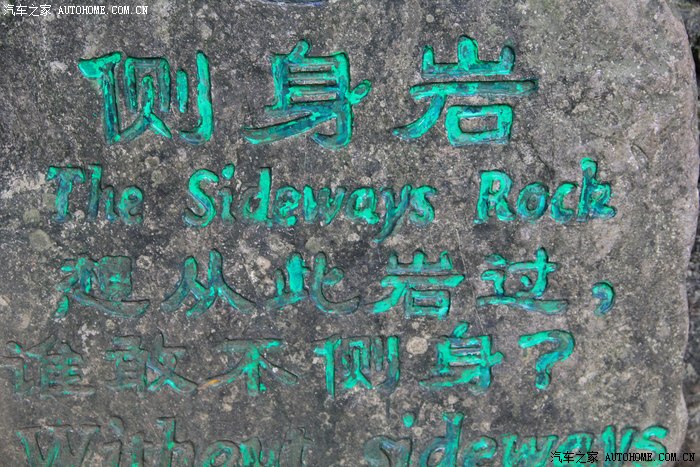 汽车之家 AUTOHOME.COM.CN
侧身岩
The Sideways Rock
想从此岩过，
谁敢不侧身？
Without sideways
汽车之家 AUTOHOME.COM.CN